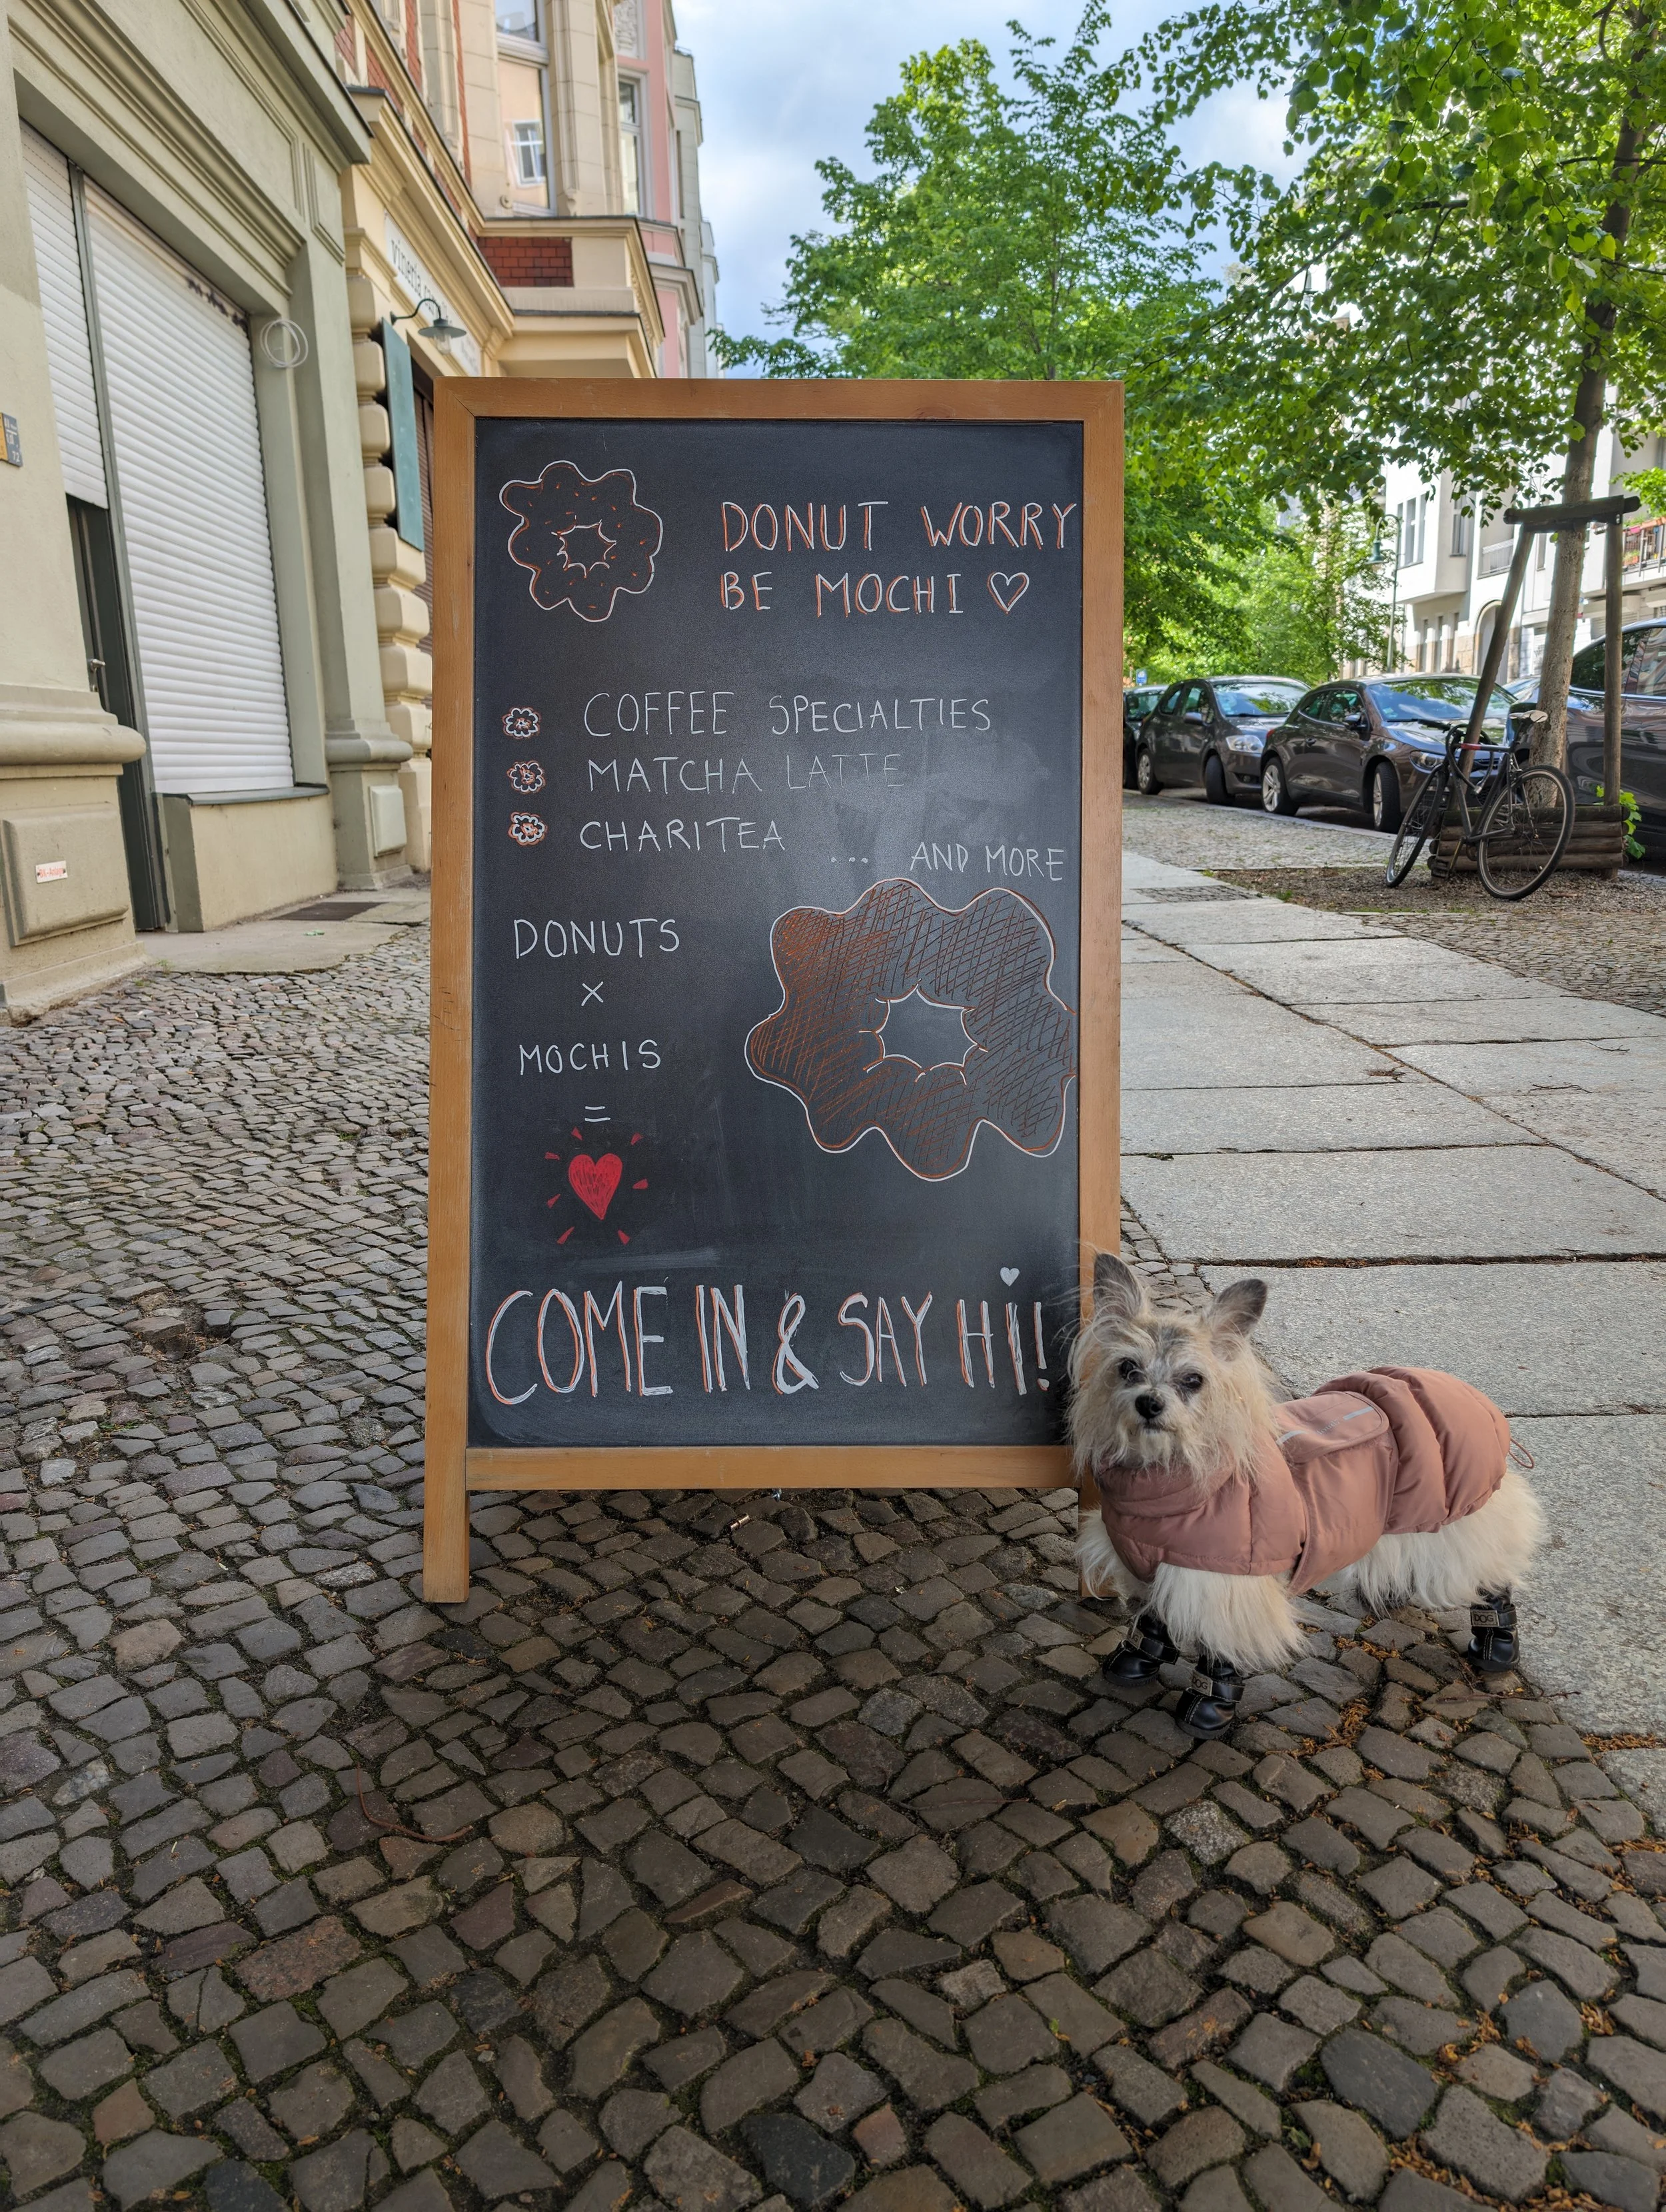 DONUT WORRY
BE MOCHI ♡
COFFEE SPECIALTIES
MATCHA LATTE
CHARITEA
... AND MORE
DONUTS
x
MOCHIS
=
COME IN & SAY HI!
DOG
DOG
vineria